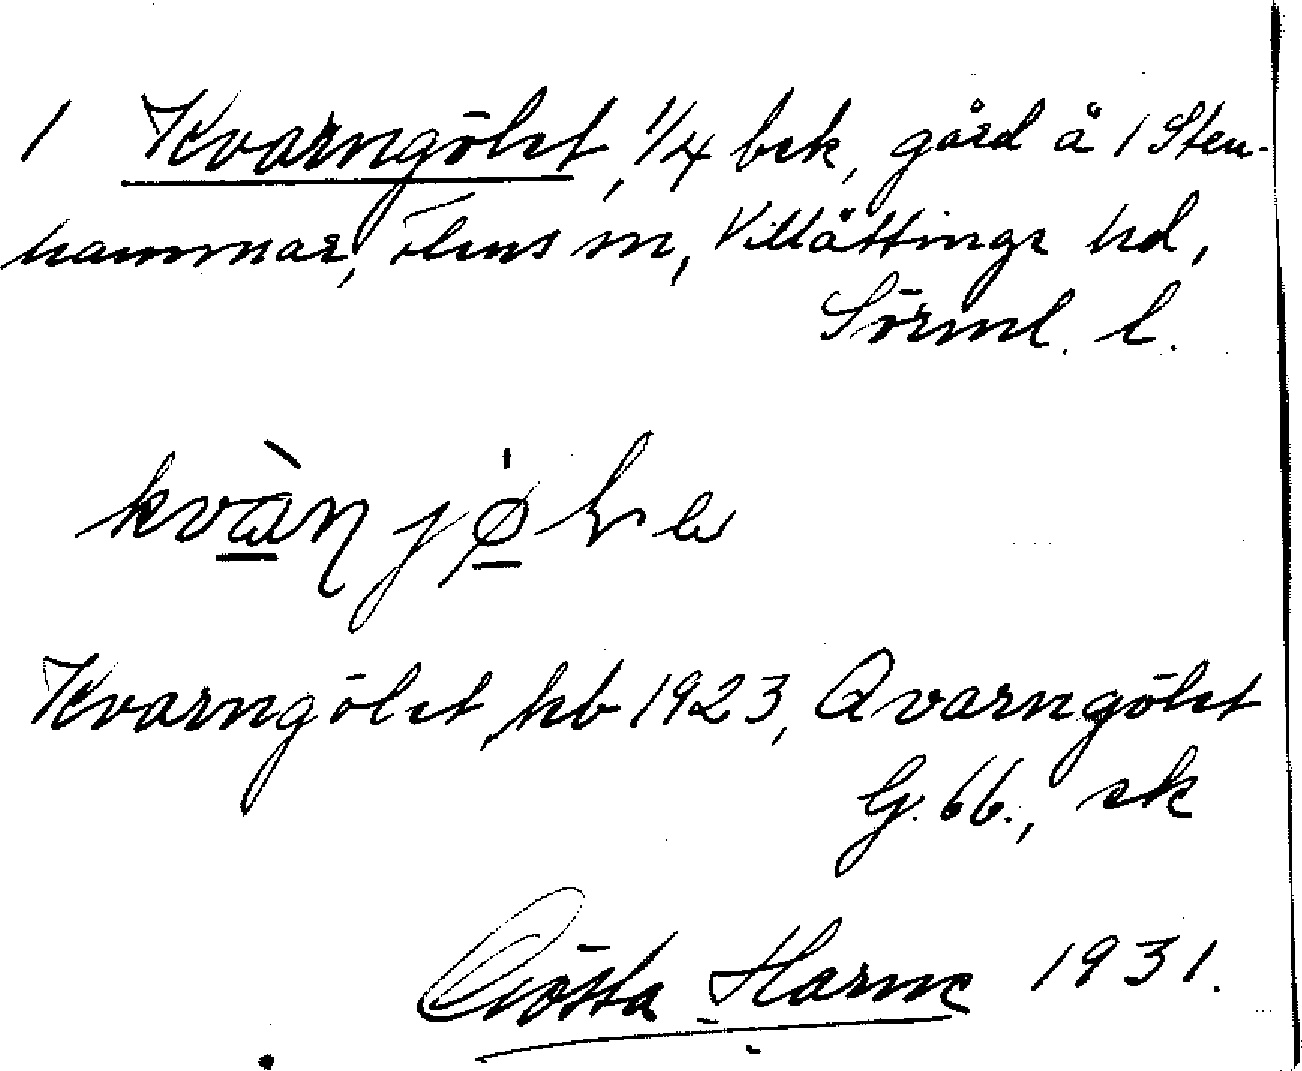 1 Kvarngölet, 1/4 bek, gård å 1 Sten-
hammar, Flens sn, Villåttinge hd,
Sörml. l.
Kvarngölet, hb 1923, Qvarngölet
G. 66., sk
Gösta Harne 1931.